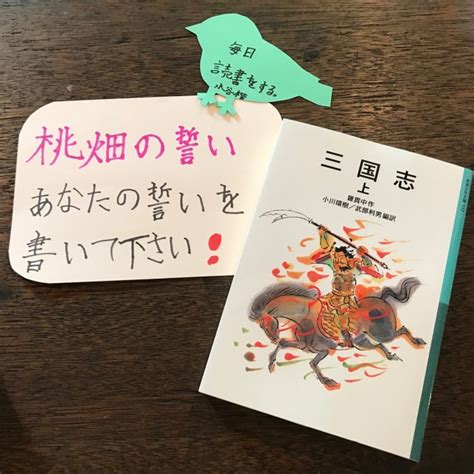 毎日
読書をする。
桃畑の誓い
あなたの誓いを
書いて下さい!
三国志
上
羅貫中作
小川環樹/武部利男編訳